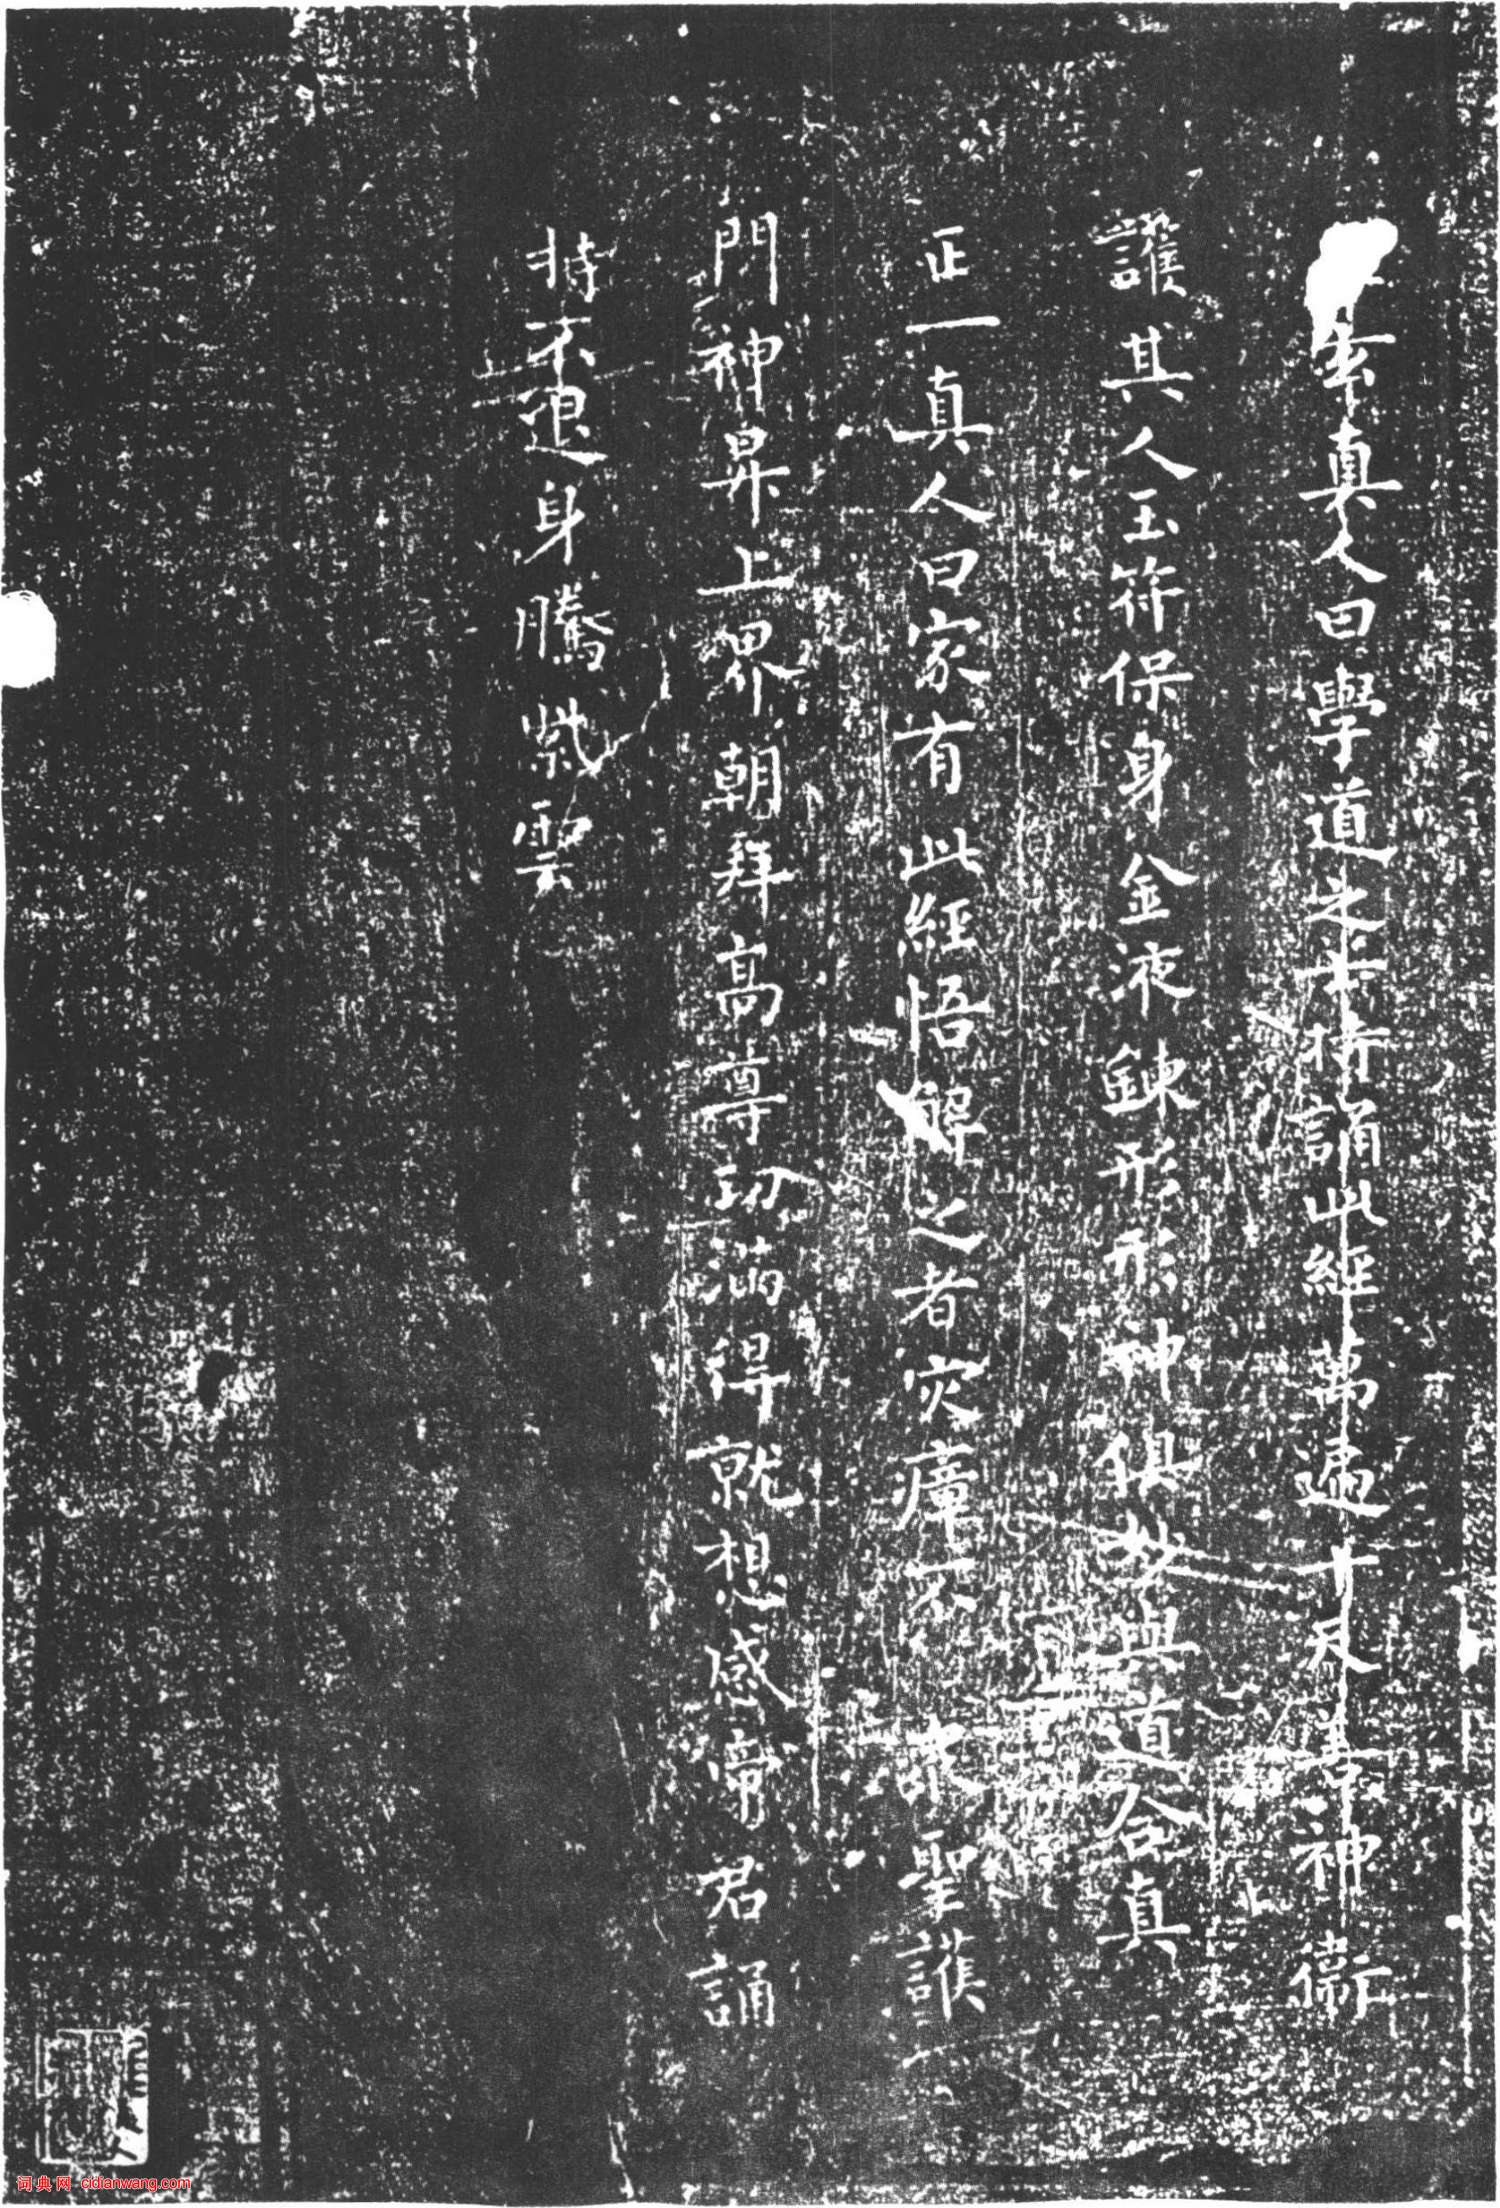 玄真人曰學道之士持誦此經萬遍十天善神衛
護其人玉符保身金液鍊形形神俱妙與道合真
正一真人曰家有此經悟解之者灾瘴不 衆聖護
門神昇上界朝拜高尊功滿得就想感帝君誦
持不退身騰紫雲
词典网 cidianwang.com